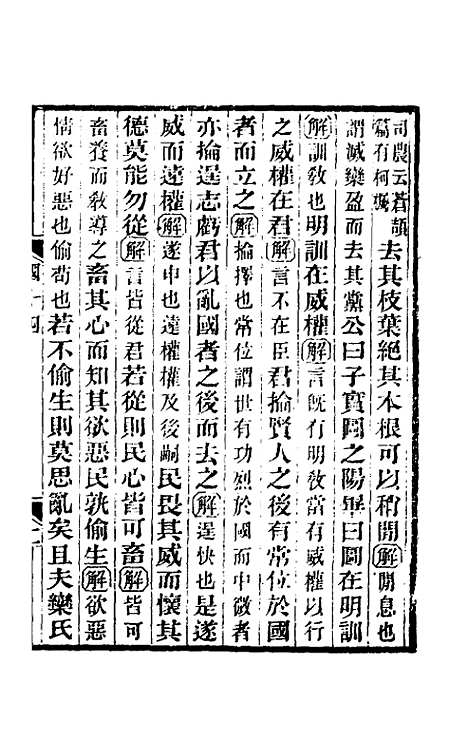 司農云蒼頡
篇有柯欘去其枝葉絕其本根可以稍閒解閒息也
謂滅欒盈而去其黨公曰子實圖之陽畢曰圖在明訓
解訓敎也明訓在威權解言旣有明敎當有威權以行
之威權在君解言不在臣君掄賢人之後有常位於國
者而立之解掄擇也常位謂世有功烈於國而中微者
亦掄逞志虧君以亂國者之後而去之解逞快也是遂
威而遠權解遂申也遠權權及後嗣民畏其威而懷其
德莫能勿從解言皆從君若從則民心皆可畜解皆可
畜養而敎導之畜其心而知其欲惡民孰偷生解欲惡
情欲好惡也偷苟也若不偷生則莫思亂矣且夫欒氏
國十四